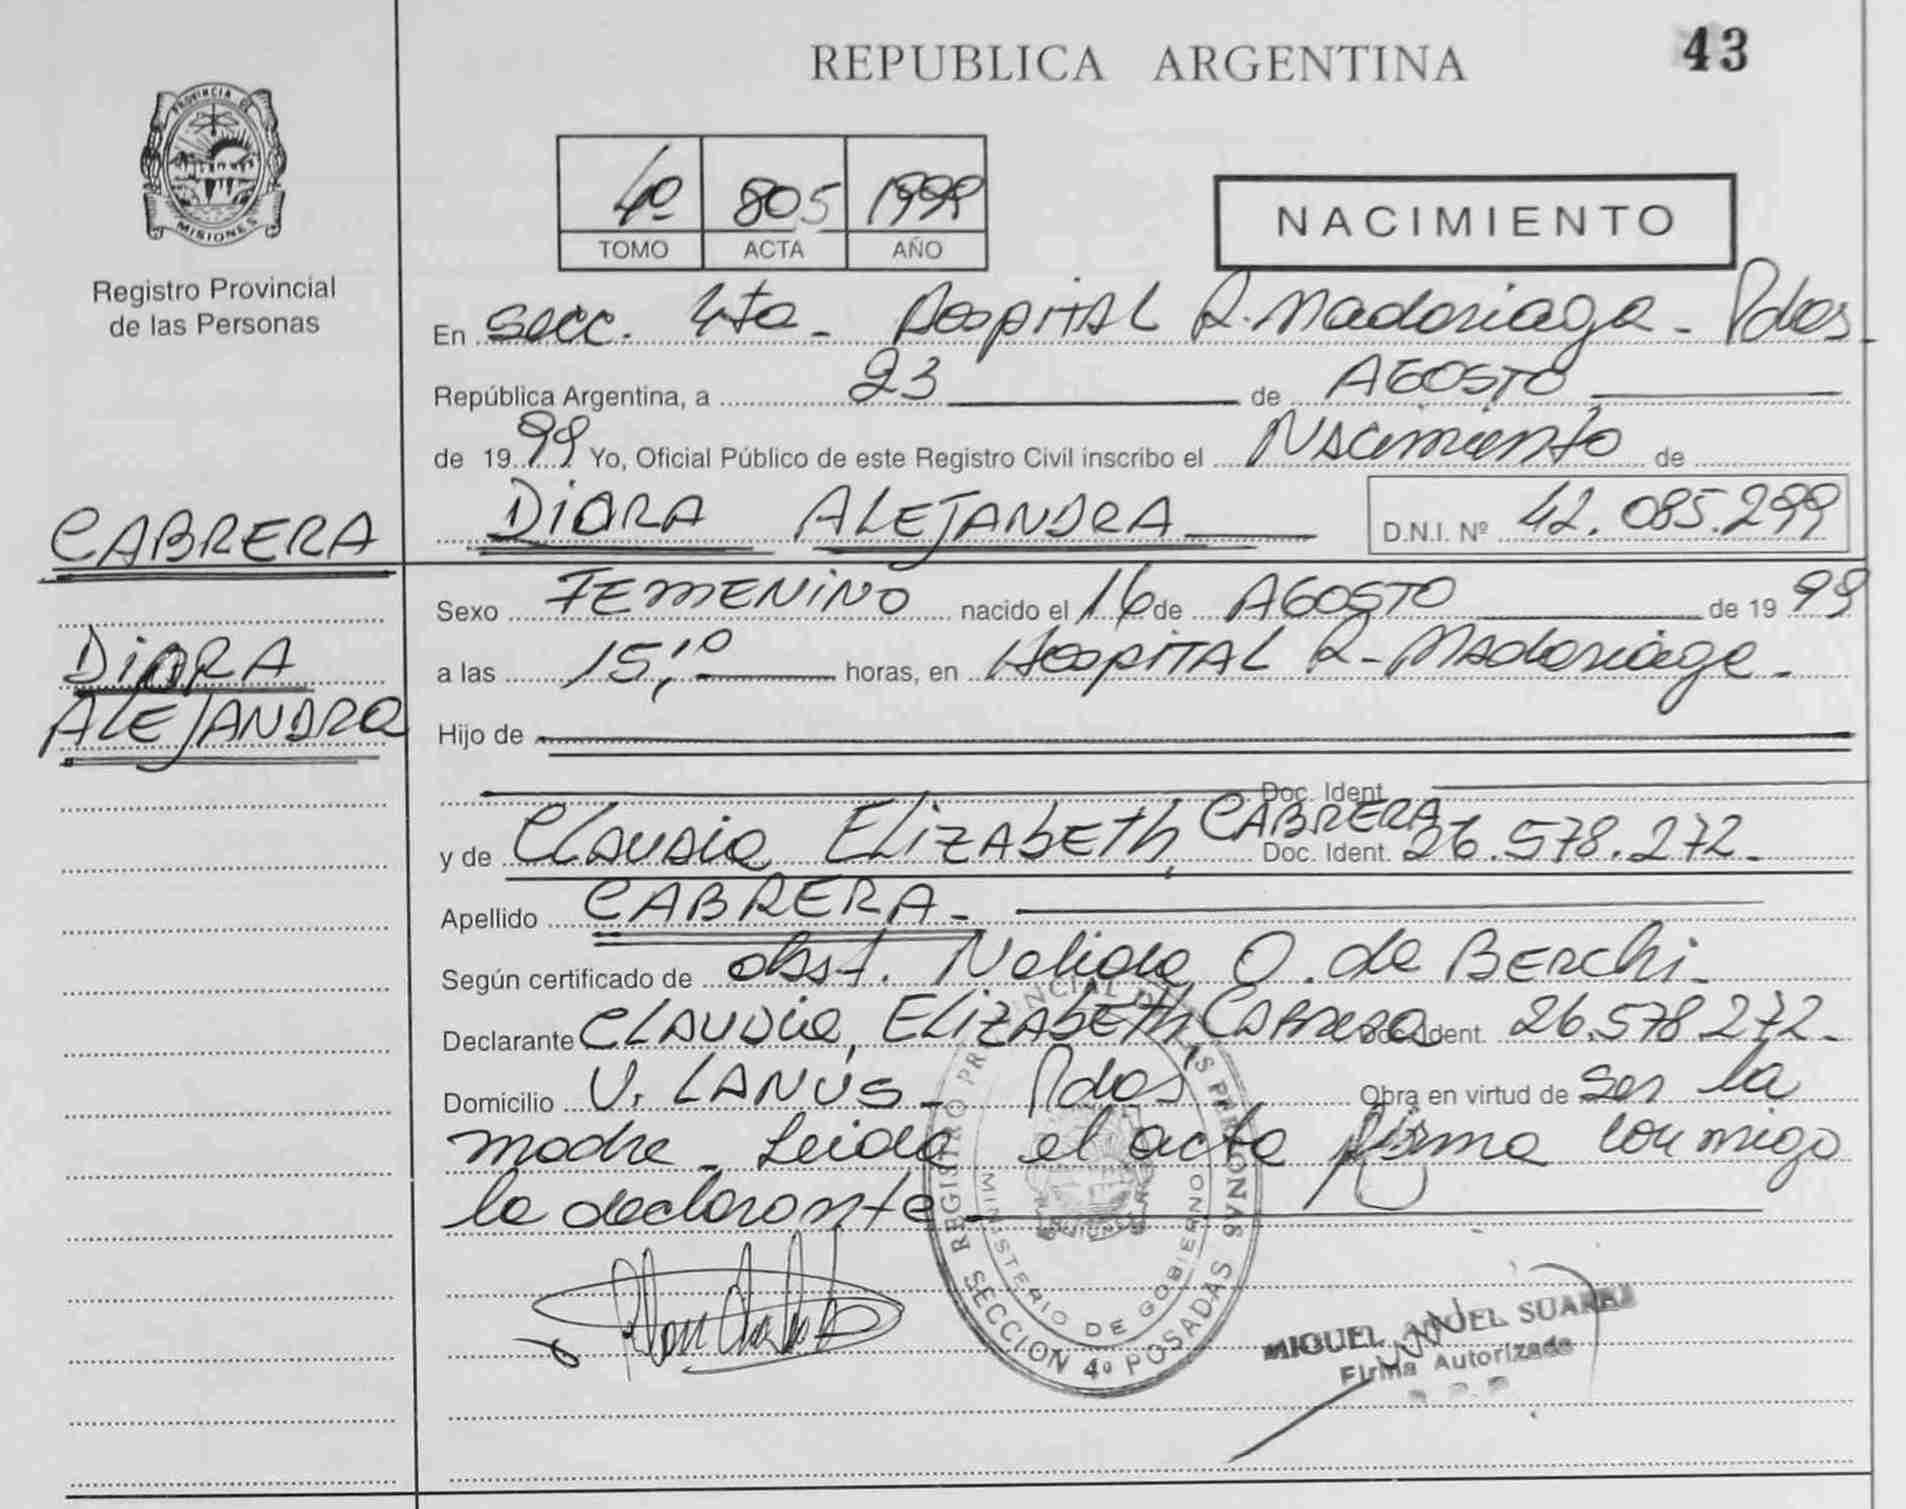 REPUBLICA ARGENTINA
43
PROVINCIA DE
MISIONES
Registro Provincial
de las Personas
4º 805 1999
TOMO ACTA AÑO
NACIMIENTO
En secc. 4ta - Hospital R. Madariaga - Pdas -
República Argentina, a 23 de AGOSTO
de 1999 Yo, Oficial Público de este Registro Civil inscribo el Nacimiento de
DIARA ALEJANDRA D.N.I. Nº 42.085.299
CABRERA
DIARA
ALEJANDRA
Sexo FEMENINO nacido el 16 de AGOSTO de 1999
a las 15,10 horas, en Hospital R - Madariaga -
Hijo de
Doc. Ident.
y de Claudia Elizabeth, CABRERA Doc. Ident. 26.578.272 -
Apellido CABRERA -
Según certificado de obst. Nelida O. de Berchi -
Declarante Claudia, Elizabeth Cabrera Doc. Ident. 26.578.272 -
Domicilio V. LANUS - Pdas Obra en virtud de ser la
madre - Leida el acta firma conmigo
la declarante
REGISTRO PROVINCIAL DE LAS PERSONAS
MINISTERIO DE GOBIERNO
SECCION 4º POSADAS
MIGUEL ANGEL SUAREZ
Firma Autorizada